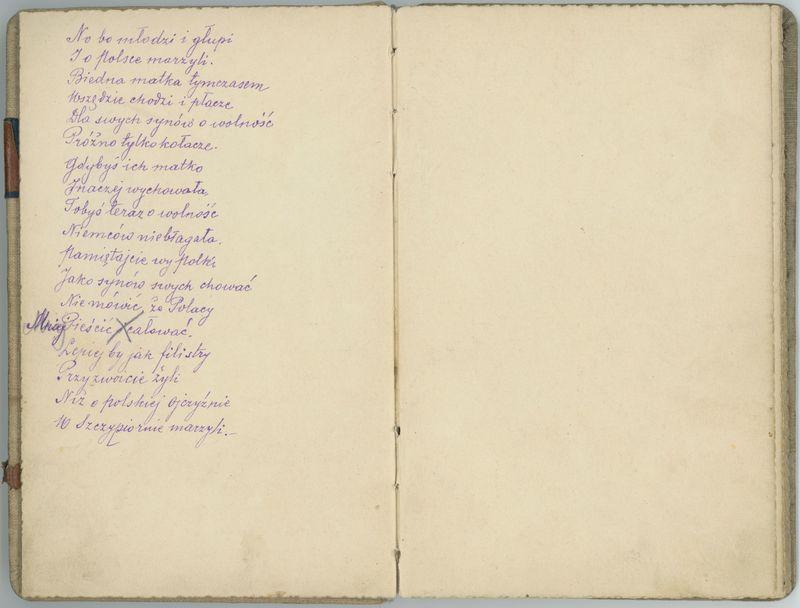 No bo młodzi i głupi
I o polsce marzyli.
Biedna matka tymczasem
Wszędzie chodzi i płacze
Dla swych synów o wolność
Próżno tylko kołacze.
Gdybyś ich matko
Inaczej wychowała
Tobyś teraz o wolność
Niemców niebłagała.
Pamiętajcie wy polki
Jako synów swych chować
Nie mówić, że Polacy
Mniej Pieścić całować.
Lepiej by jak filistry
Przyzwoicie żyli
Niż o polskiej ojczyźnie
W Szczypiornie marzyli.—